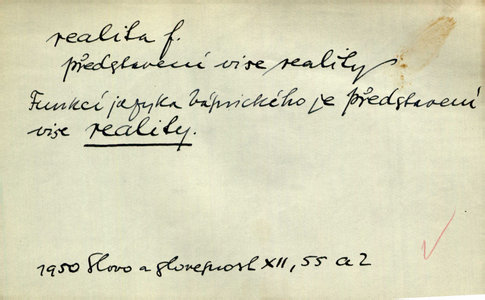 realita f.
představení vise reality
Funkcí jazyka básnického je představení
vise reality.
1950 Slovo a slovesnost XII, 55 a 2